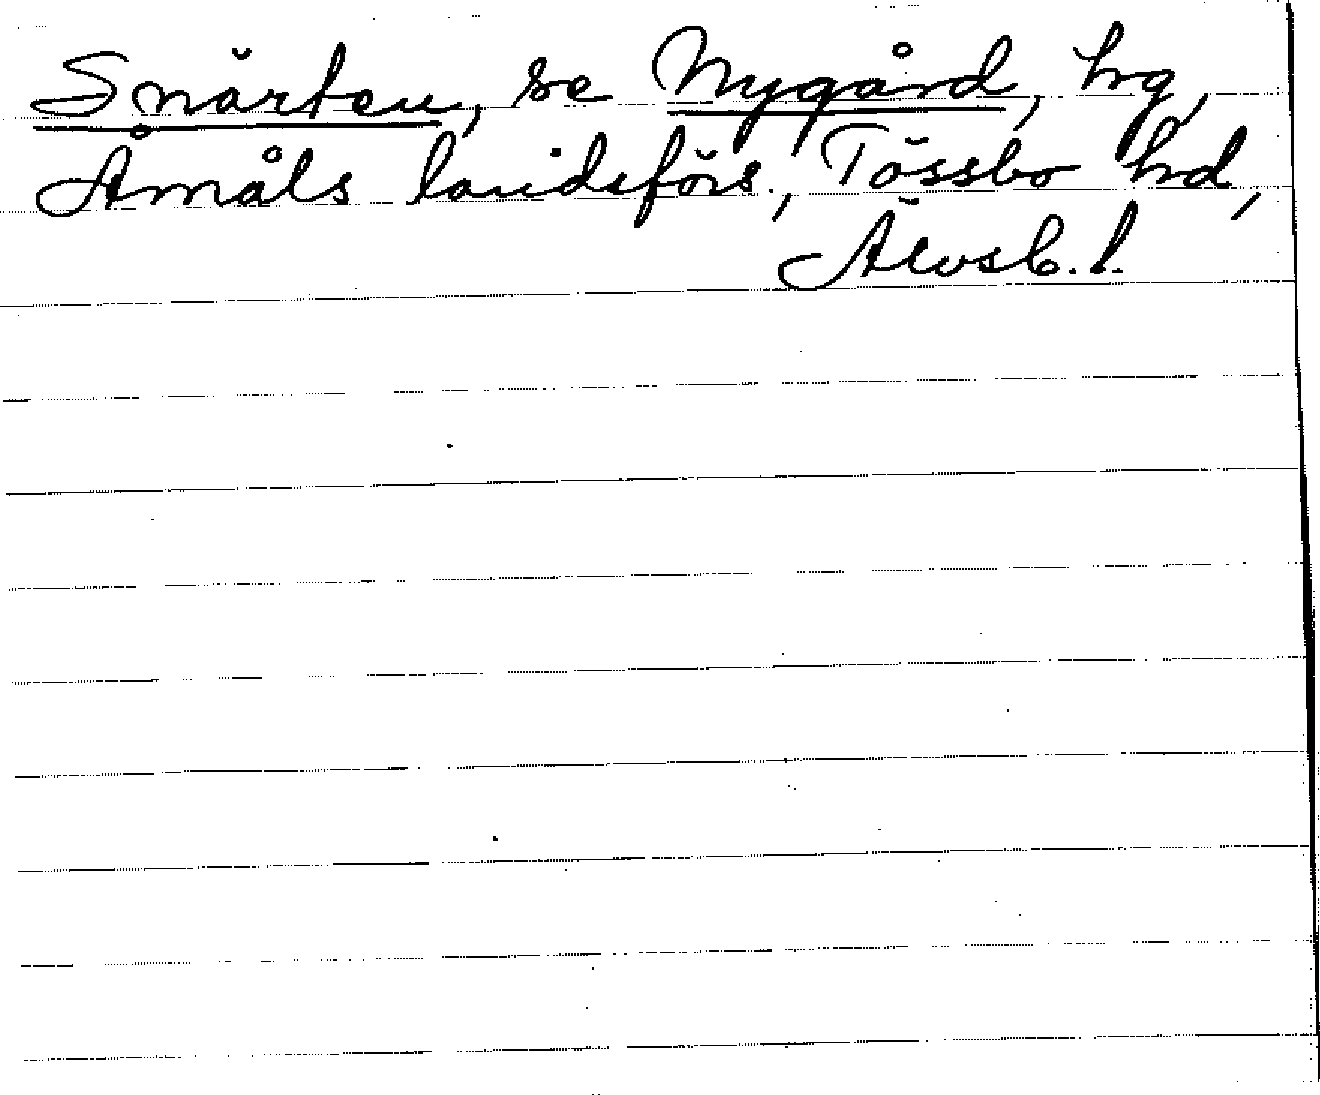 Snärten, se Nygård, hg,
Åmåls landsförs., Tössbo hd,
Älvsb. l.